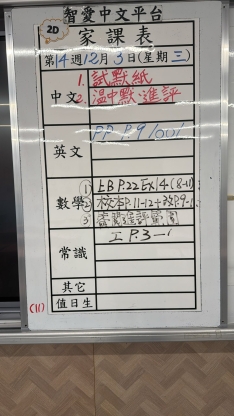 智愛中文平台
2D
家課表
第14週12月3日(星期三)
中文
1. 試默紙
2. 温中默、進評
英文
數學
① LB P.22 Ex14 (8-11)
② 校本P.11-12+
③
常識
工 P.3-1
其它
值日生
(11)